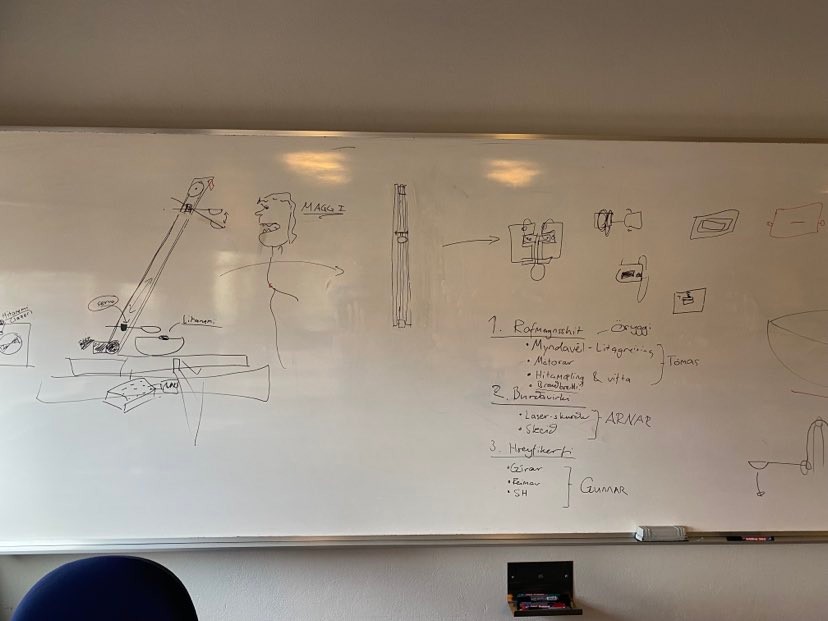 MAGGI
Servo
Hitamæ
1. Rafmagnsshit - Öryggi
• Myndavél - Litagreining
• Motorar
• Hitamæling & vifta
• Brauðbretti
Tómas
2. Burðavirki
• Laser-skurður
• Sleði
ARNAR
3. Hreyfikerfi
• Gírar
• Reimar
• SH
GUNNAR